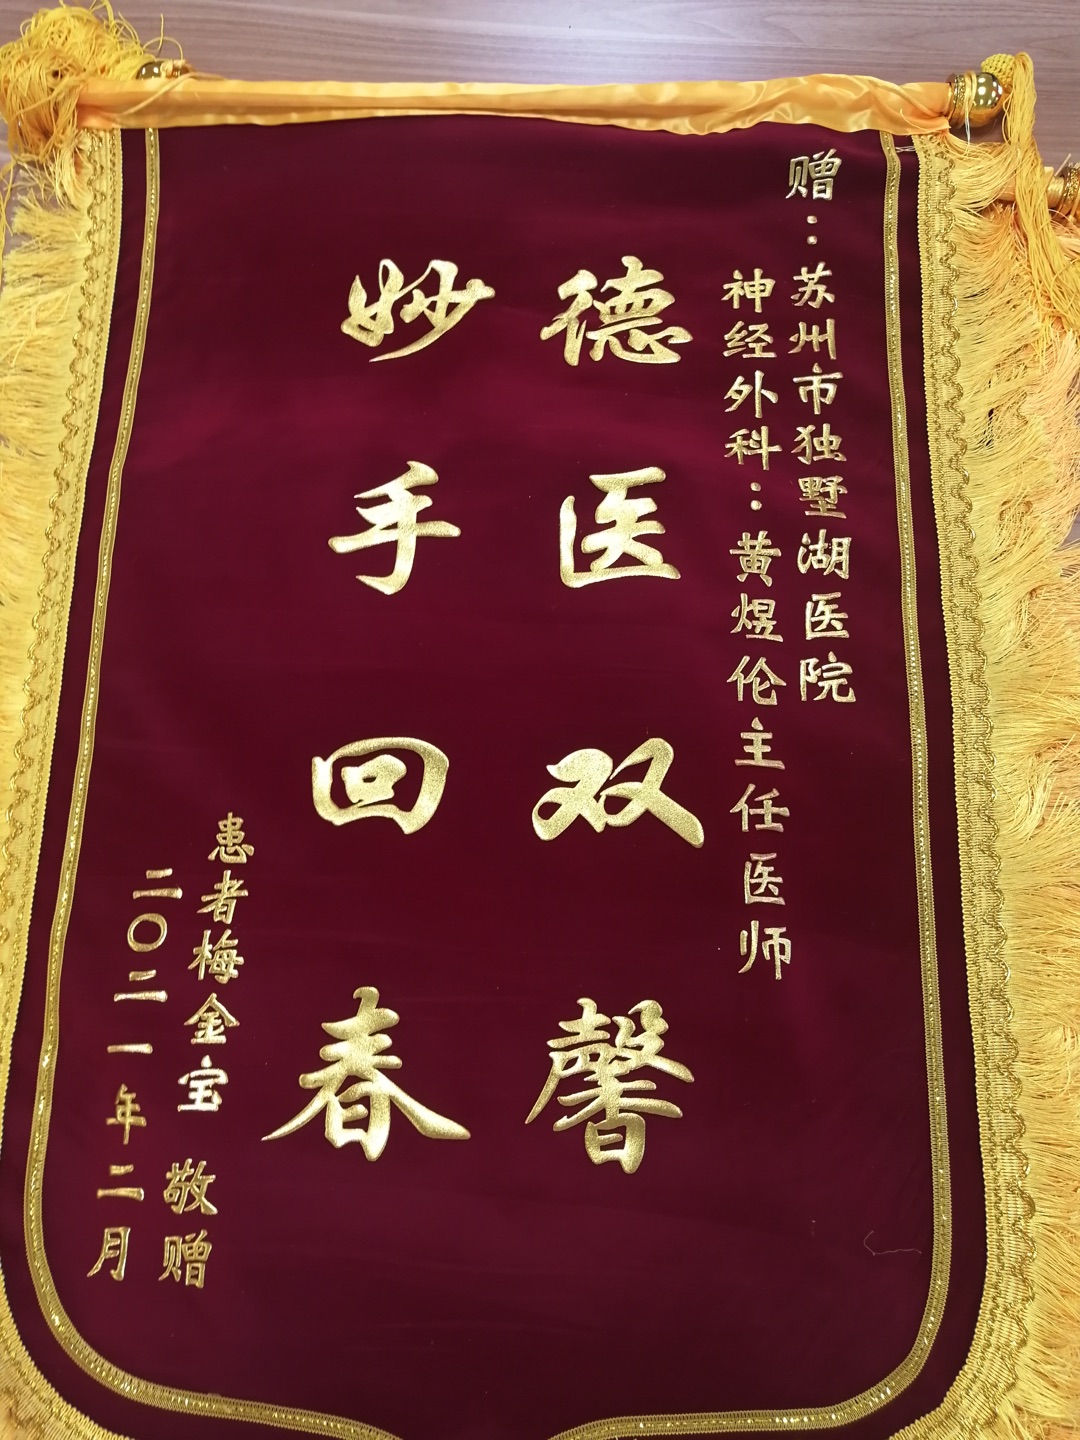 赠：苏州市独墅湖医院
神经外科：黄煜伦主任医师
德医双馨
妙手回春
患者梅金宝 敬赠
二〇二一年二月